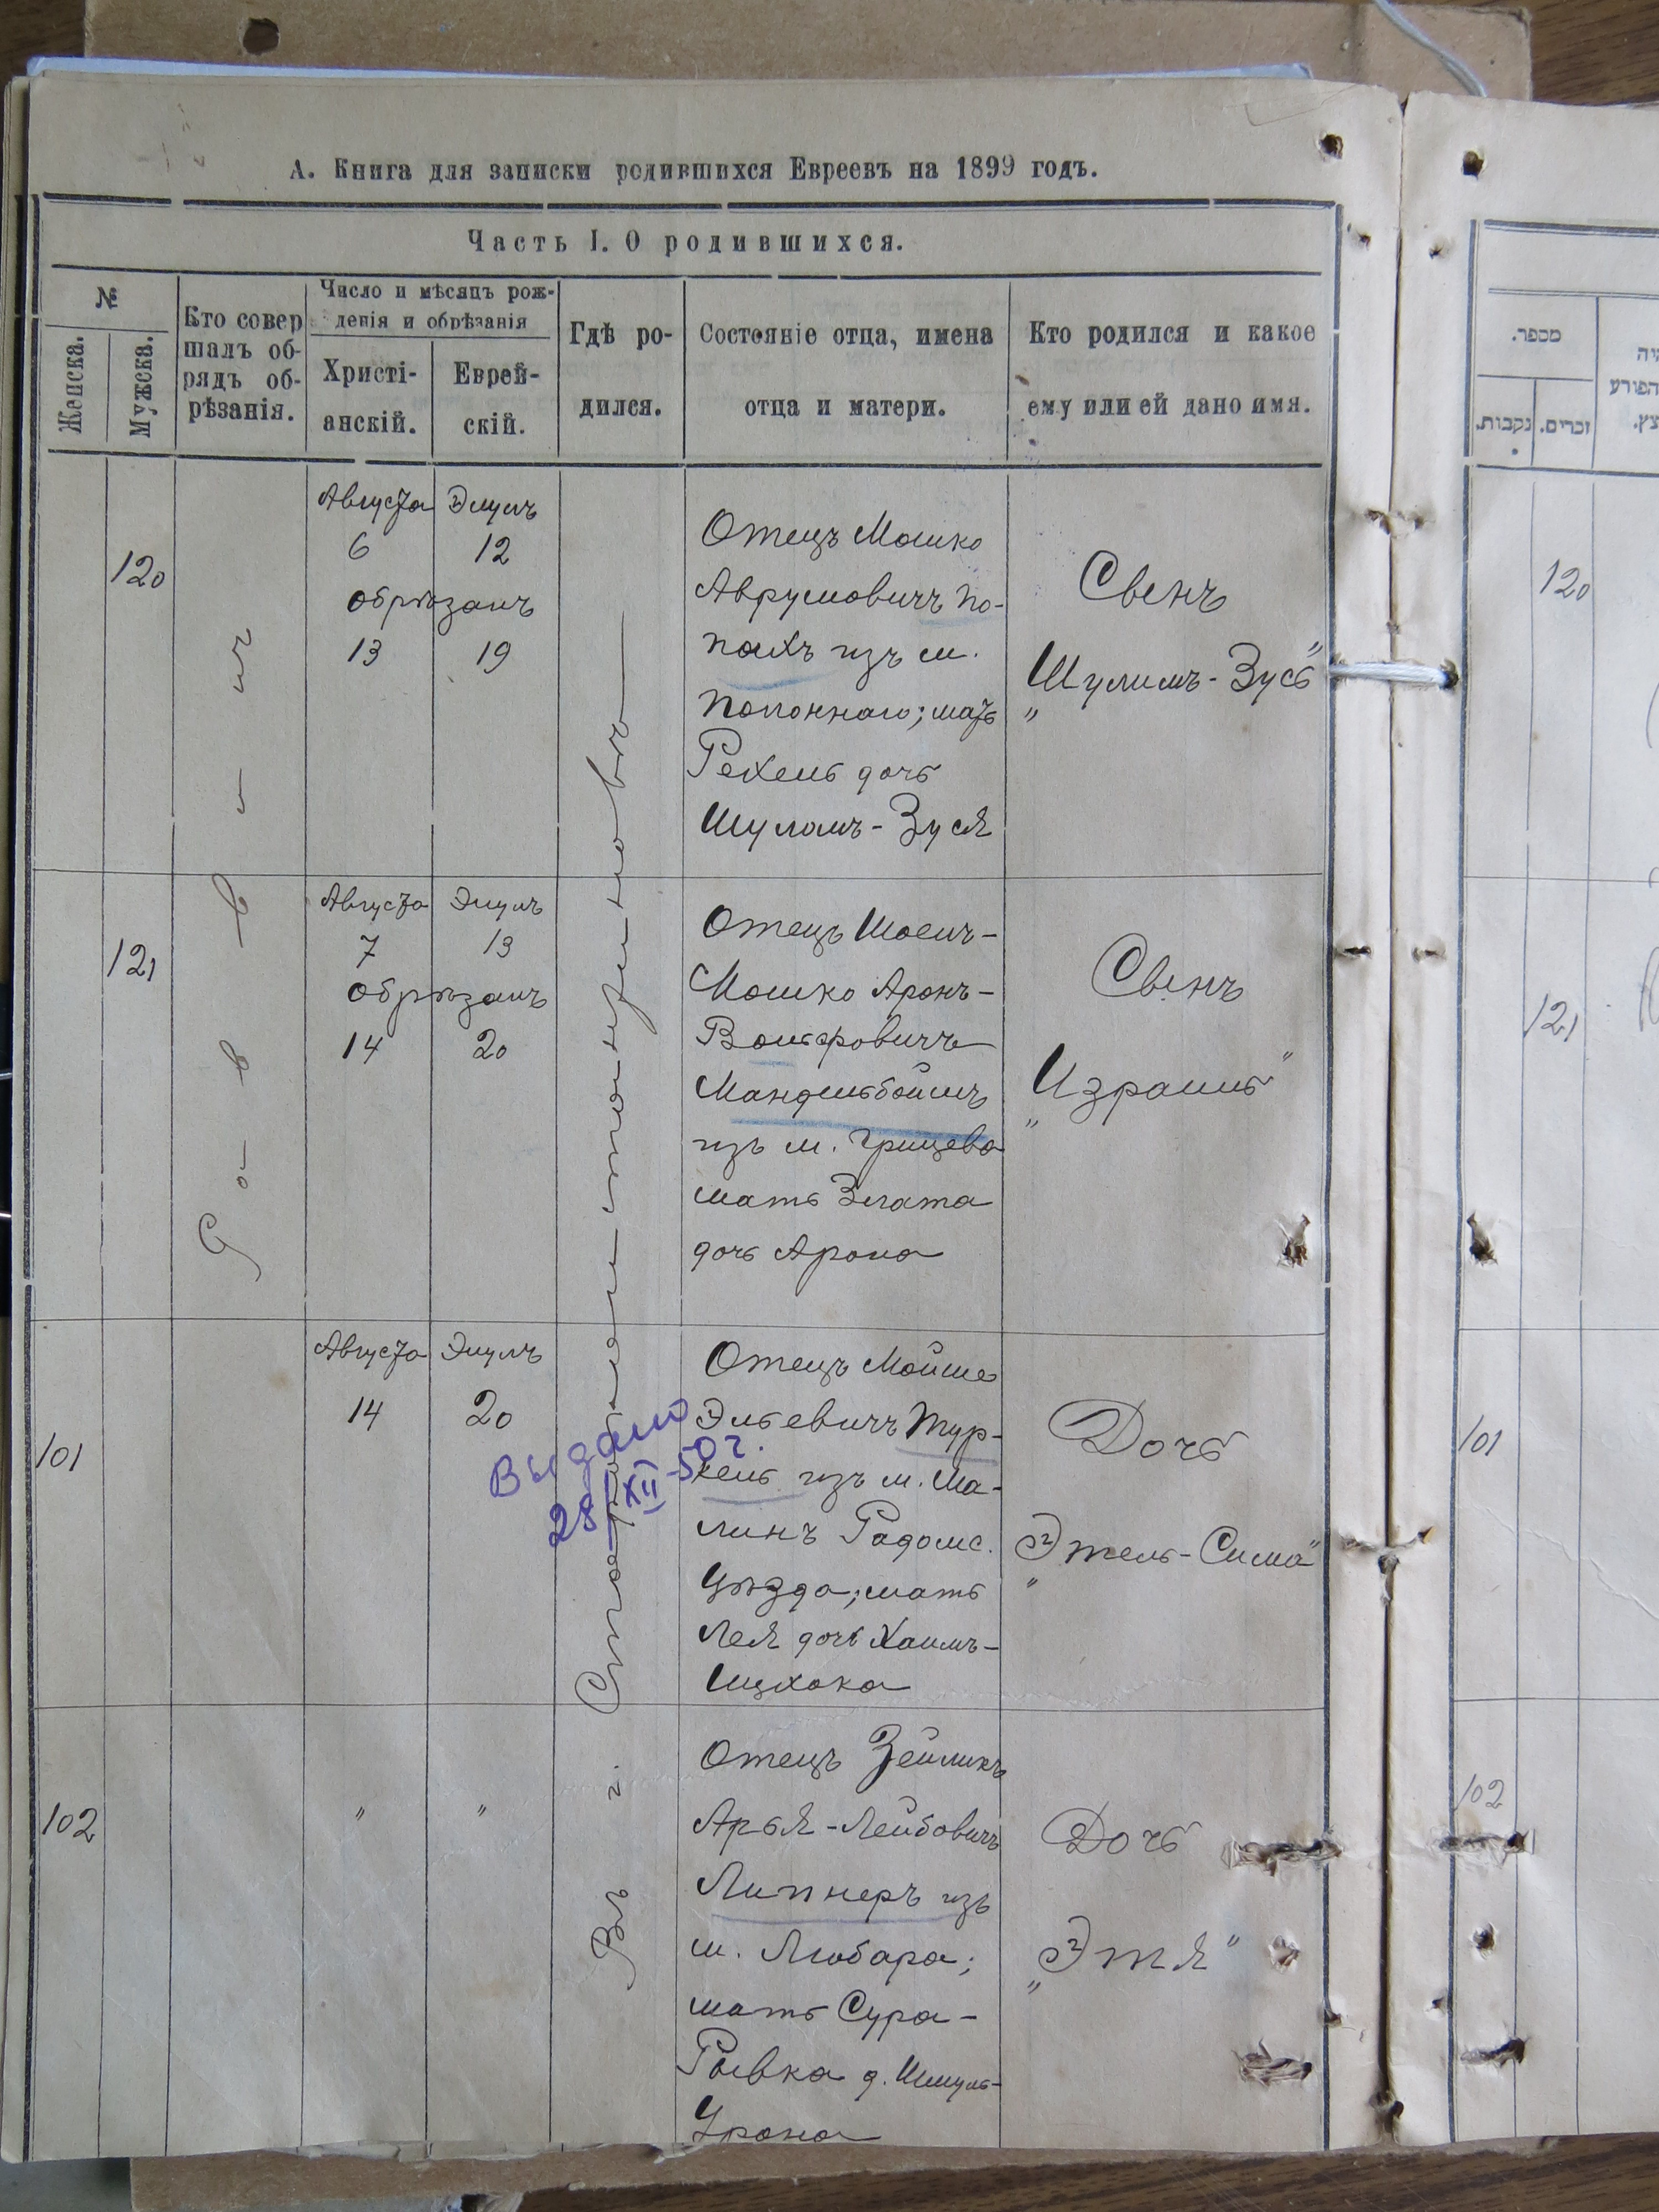 А. Книга для записки родившихся Евреевъ на 1899 годъ.
Часть I. О родившихся.
№
Женска.
Мужска.
Кто совер
шалъ об-
рядъ об-
рѣзанія.
Число и мѣсяцъ рож-
денія и обрѣзанія
Христі-
анскій.
Еврей-
скій.
Гдѣ ро-
дился.
Состояніе отца, имена
отца и матери.
Кто родился и какое
ему или ей дано имя.
Въ г. Староконстантиновѣ
120
Августа Элулъ
6 12
обрѣзанъ
13 19
Отецъ Мошко
Аврумовичъ По-
пахъ изъ м.
Полоннаго; мать
Рехель дочь
Шулимъ-Зуся
Сынъ
„Шулимъ-Зусь"
121
Августа Элулъ
7 13
обрѣзанъ
14 20
Отецъ
Мошко Аронъ-
Вольфовичъ
Мандельбоймъ
изъ м. Грицева
мать Злата
дочь Арона
Сынъ
„Израиль"
101
Августа Элулъ
14 20
Выдано
28/XII-50 г.
Отецъ Мойше
Эльевичъ Тур-
кель изъ м. Ма-
линъ Радомс.
Уѣзда; мать
Лея дочь Хаимъ-
Ицхока
Дочь
„Этель-Сима"
102
" "
Отецъ Зейликъ
Арья-Лейбовичъ
Липнеръ изъ
м. Любара;
мать Сура-
Рывка д. Шмуль-
Урона
Дочь
„Этя"
מספר.
נקבות.
זכרים.
הפורע
120
121
101
102